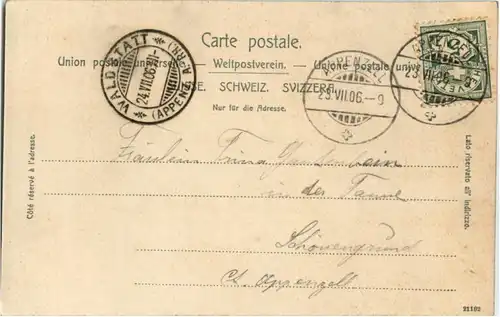 Carte postale.
Union postale universelle. — Weltpostverein. — Unione postale univer
SE. SCHWEIZ. SVIZZERA.
Nur für die Adresse.
WALDSTATT
24.VII.06.
(APPENZ. A.-RH.)
APPENZELL
23.VII.06.–9
APPENZELL
23.VII.06.–9
Côté réservé à l'adresse.
Lato riservato all' indirizzo.
Fräulein
in der Tanne
Schönengrund
Ct. Appenzell